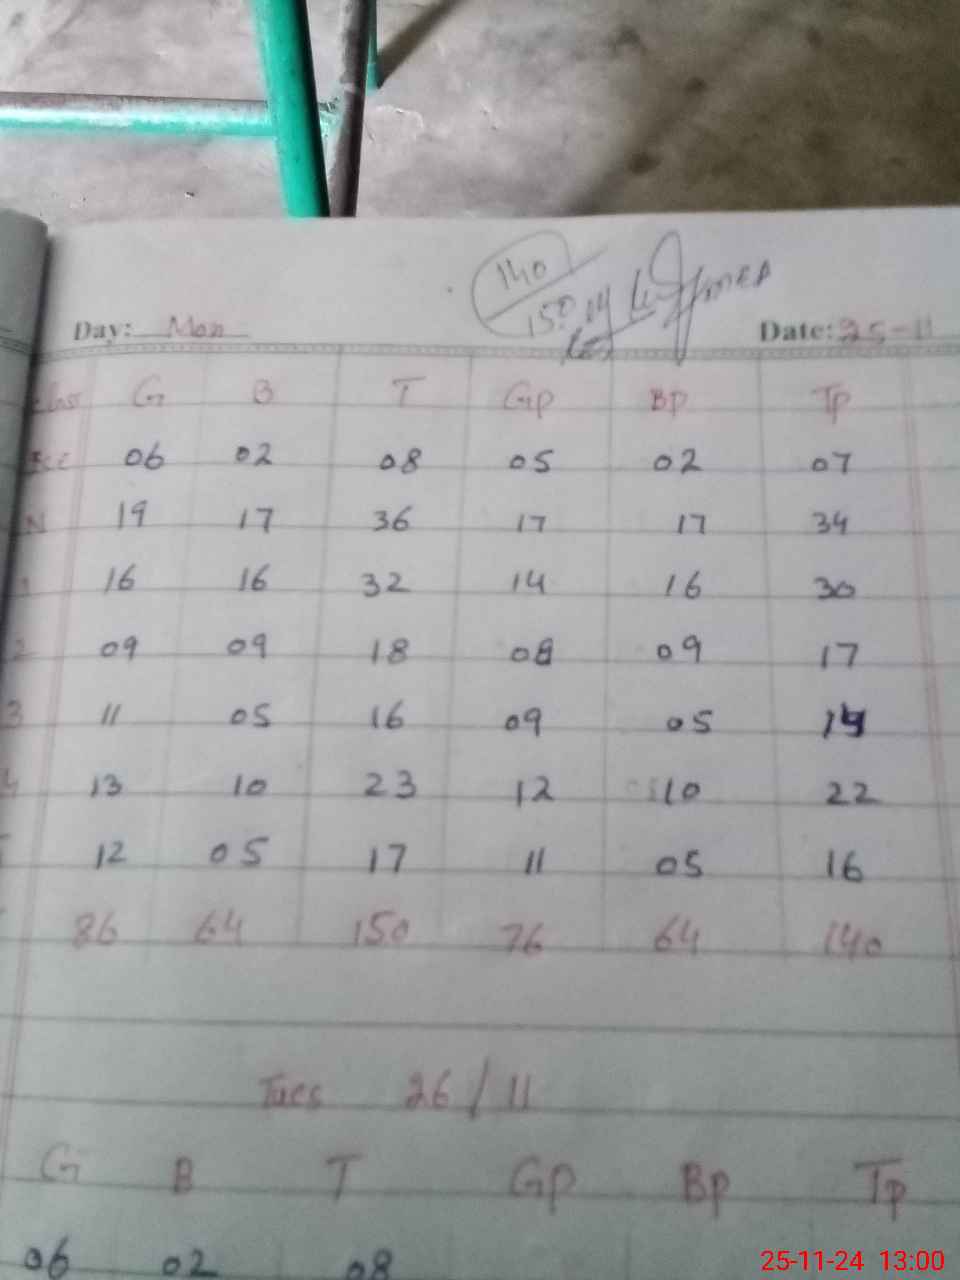 140
150
Day: Mon Date: 25-11
Class G B T Gp Bp Tp
06 02 08 05 02 07
N 19 17 36 17 17 34
1 16 16 32 14 16 30
2 09 09 18 08 09 17
3 11 05 16 09 05 14
4 13 10 23 12 10 22
5 12 05 17 11 05 16
86 64 150 76 64 140
Tues 26/11
G B T Gp Bp Tp
06 02 08
25-11-24 13:00